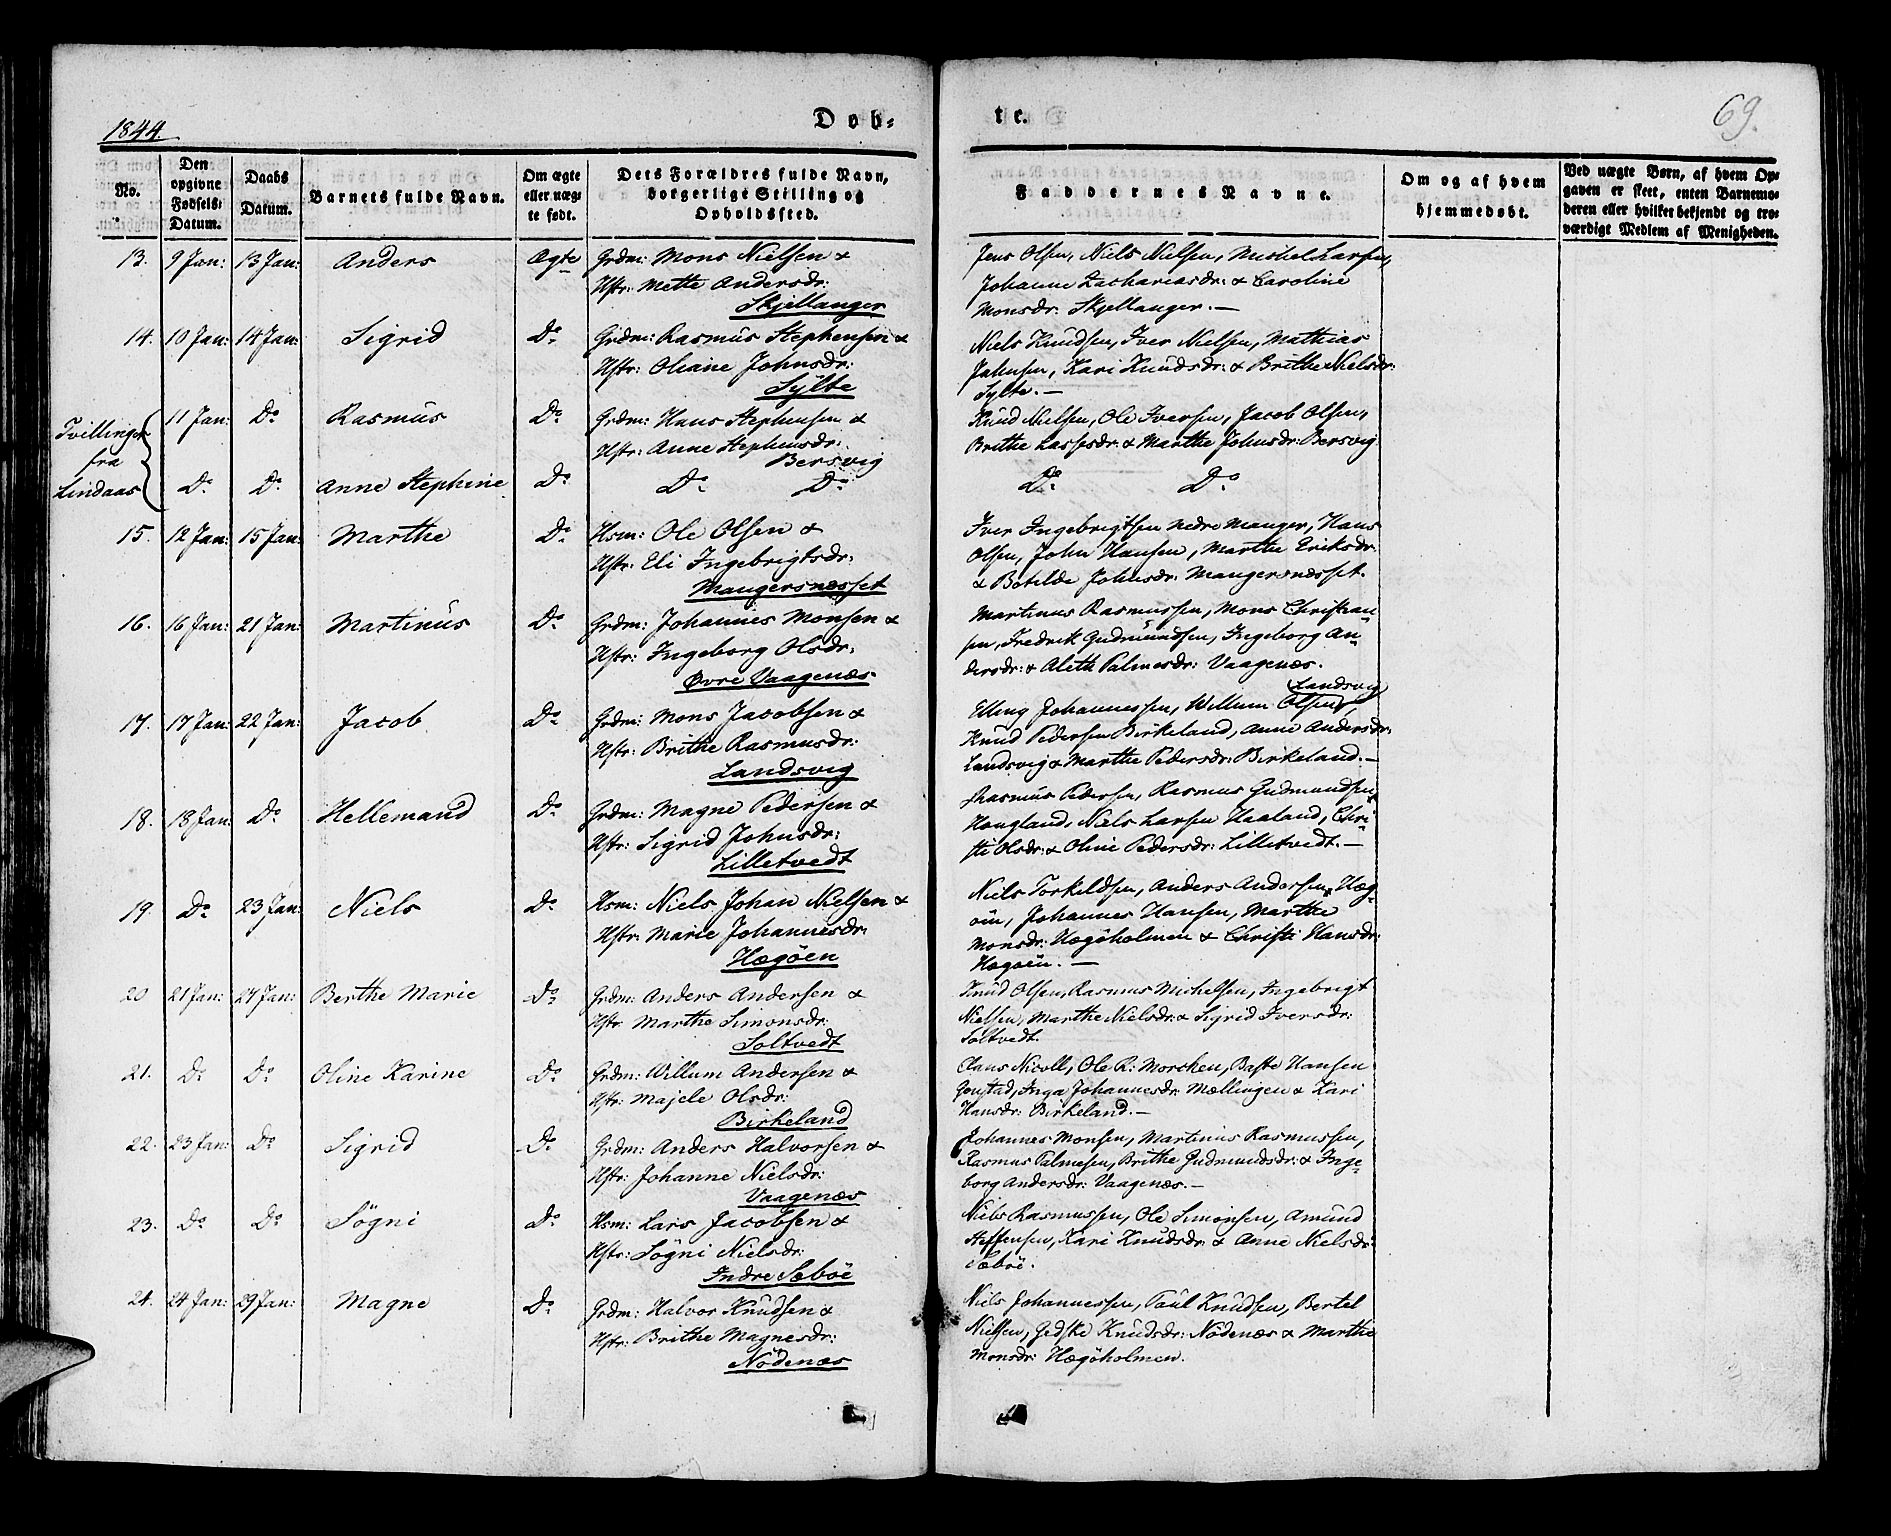 1844.
Døb=
te.
69.
No.
Den opgivne Fødsels= Datum.
Daabs Datum.
Barnets fulde Navn.
Om ægte eller uæg= te født.
Dets Forældres fulde Navn, borgerlige Stilling og Opholdssted.
Faddernes Navne.
Om og af hvem hjemmedøbt.
Ved uægte Børn, af hvem Op= gaven er skeet, enten Barnemo= deren eller hvilket bekjendt og tro= værdigt Medlem af Menigheden.
13. 9 Jan: 13 Jan: Anders Ægte Grdm: Mons Nielsen &
Hstr: Mette Andersdr:
Skjellanger
Jens Olsen, Niels Nielsen, Michel Larsen,
Johanne Zachariasdr: & Caroline
Monsdr. Skjellanger. —
14. 10 Jan: 14 Jan: Sigrid Do Grdm: Rasmus Stephensen &
Hstr: Oliane Johnsdr:
Sylte
Niels Knudsen, Iver Nielsen, Mathias
Johnsen, Kari Knudsdr: & Brithe Nielsdr:
Sylte. —
Tvillinger
fra
Lindaas
11 Jan: Do Rasmus Do Grdm: Hans Stephensen &
Hstr: Anne Stephensdr:
Bersvig
Knud Nielsen, Ole Iversen, Jacob Olsen,
Brithe Lassesdr: & Marthe Johnsdr: Bersvig
Do Do Anne Stephine Do Do Do
Do Do
15. 12 Jan: 15 Jan: Marthe Do Hsm: Ole Olsen &
Hstr: Eli Ingebrigtsdr:
Mangersnæsset
Iver Ingebrigtsen nedre Manger, Hans
Olsen, John Hansen, Marthe Eriksdr:
& Botilde Johnsdr: Mangersnæsset.
16. 16 Jan: 21 Jan: Martinus Do Grdm: Johannes Monsen &
Hstr: Ingeborg Olsdr:
Øvre Vaagenæs
Martinus Rasmussen, Mons Christian=
sen, Fredrik Gudmundsen, Ingeborg An=
dersdr: & Aleth Palmesdr: Vaagenæs.
17. 17 Jan: 22 Jan: Jacob Do Grdm: Mons Jacobsen &
Hstr: Brithe Rasmusdr:
Landsvig
Landsvig
Elling Johannessen, Willum Olsen,
Knud Pedersen Birkeland, Anne Andersdr:
Landsvig & Marthe Pedersdr: Birkeland. —
18. 18 Jan: Do Hellemand Do Grdm: Magne Pedersen &
Hstr: Sigrid Johnsdr:
Lilletvedt
Rasmus Pedersen, Rasmus Gudmundsen
Hougland, Niels Larsen Haaland, Chri=
sti Olsdr: & Oline Pedersdr: Lilletvedt. —
19. Do 23 Jan: Niels Do Hsm: Niels Johan Nielsen &
Hstr: Marie Johannesdr:
Hægöen
Niels Torkildsen, Anders Andersen Hæg=
öen, Johannes Hansen, Marthe
Monsdr: Hægöholmen & Christi Hansdr:
Hægöen. —
20 21 Jan: 27 Jan: Berthe Marie Do Grdm: Anders Andersen &
Hstr: Marthe Simonsdr:
Soltvedt
Knud Olsen, Rasmus Michelsen, Ingebrigt
Nielsen, Marthe Nielsdr: & Sigrid Iversdr:
Soltvedt.
21. Do Do Oline Karine Do Grdm: Willum Andersen &
Hstr: Majele Olsdr:
Birkeland
Claus Nicoll, Ole R: Morcken, Baste Hansen
Inga Johannesdr: Mællingen & Kari
Hansdr: Birkeland. —
22. 23 Jan: Do Sigrid Do Grdm: Anders Halvorsen &
Hstr: Johanne Nielsdr:
Vaagenæs
Johannes Monsen, Martinus Rasmussen,
Rasmus Palmesen, Brithe Gudmundsdr: & Inge=
borg Andersdr: Vaagenæs. —
23. Do Do Sögni Do Hsm: Lars Jacobsen &
Hstr: Sögni Nielsdr:
Indre Sæböe
Niels Rasmussen, Ole Simonsen, Amund
Steffensen, Kari Knudsdr: & Anne Nielsdr:
Sæböe.
24. 24 Jan: 29 Jan: Magne Do Grdm: Halvor Knudsen &
Hstr: Brithe Magnesdr:
Nödenæs
Niels Johannessen, Paul Knudsen, Bertel
Nielsen, Gedske Knudsdr: Nödenæs & Marthe
Monsdr: Hægöholmen.